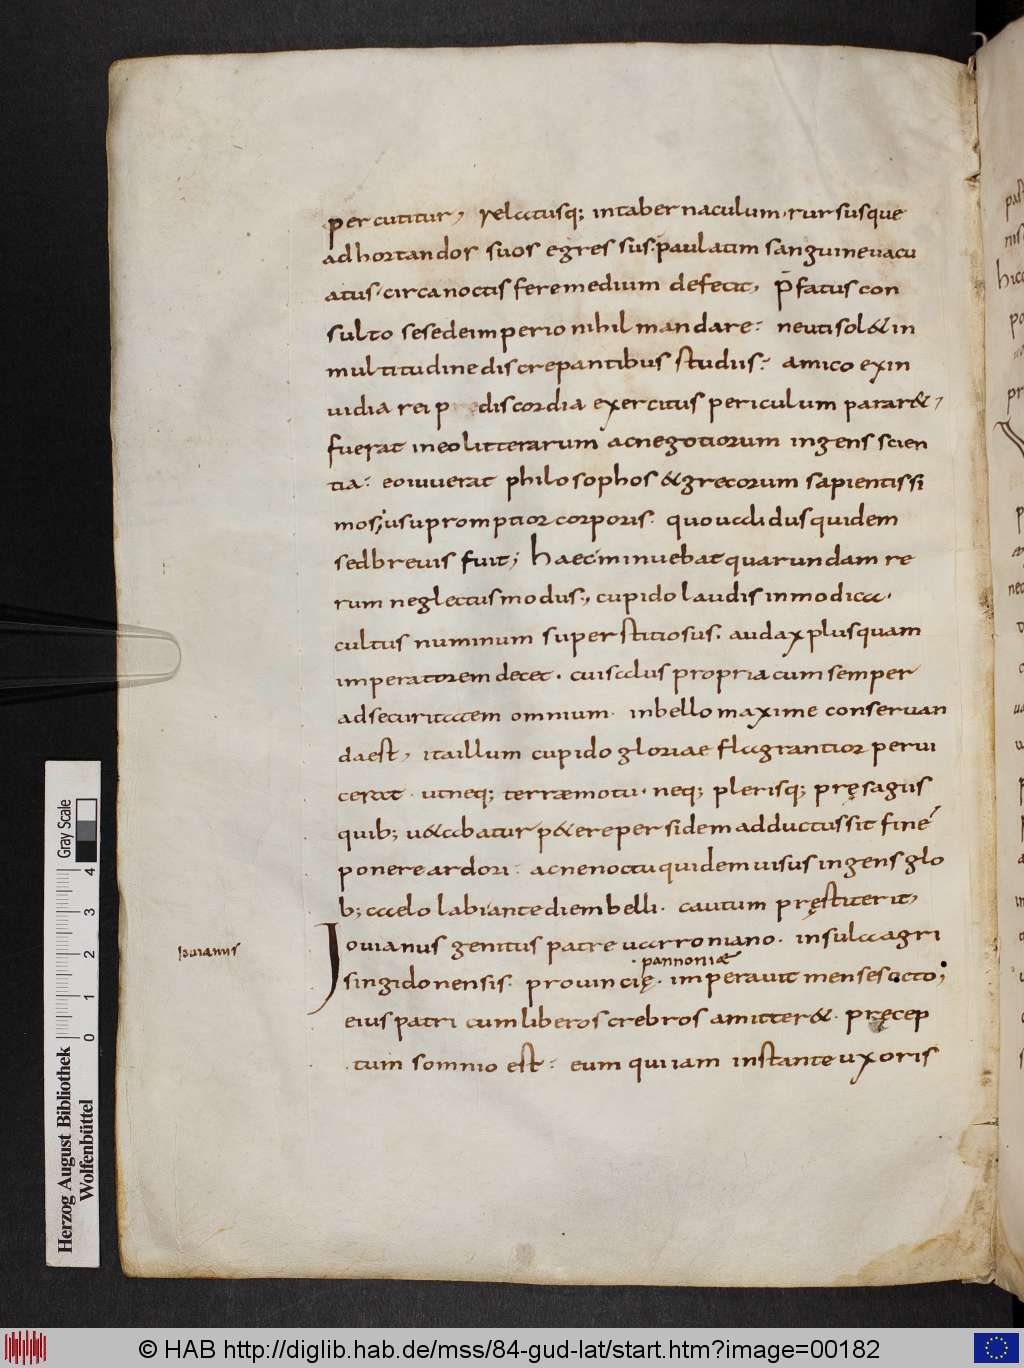 percutitur, relatusq; intabernaculum. rursusque
adhortandos suos egressus. paulatim sanguineuacu
atus. circanoctis feremedium defecit, p̄fatus con
sulto sesedeimperio nihil mandare: neutisol& in
multitudinediscrepantibus studiis: amico exin
uidia rei p discordia exercitus periculum parar&,
fuerat ineolitterarum acnegotiorum ingens scien
tia: eoiuuerat philosophos &grecorum sapientissi
mos; usupromptior corporis. quoualidusquidem
sedbreuis fuit; haecminuebatquarundam re
rum neglectusmodus., cupidolaudis inmodica.
cultus numinum superstitiosus. audaxplusquam
imperatorem decet. cuisalus propria cum semper
adsecuritatem omnium. inbello maxime conseruan
daest, itaillum cupidogloriae flagrantior perui
cerat. utneq; terræmotu. neq; plerisq; pręsagiis
quib; u&abatur p&erepersidem adductussit finē
ponere ardori: acnenoctuquidemuisus ingens glo
b; caelo labiantediembelli. cautum pręstiterit,
Iouianus genitus patre uarroniano. insulaagri
.pannoniæ
singidonensis. prouincię. imperauit menses octo;
eius patri cumliberoscrebros amitter&. pręcep
.tum somnio est: eum quiiam instanteuxoris
Iouianus
Herzog August Bibliothek
Wolfenbüttel
0 1 2 3 4
Gray Scale
© HAB http://diglib.hab.de/mss/84-gud-lat/start.htm?image=00182